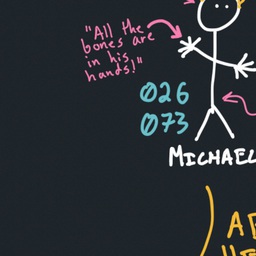 "All the
bones are
in his
hands!"
026
073
MICHAEL